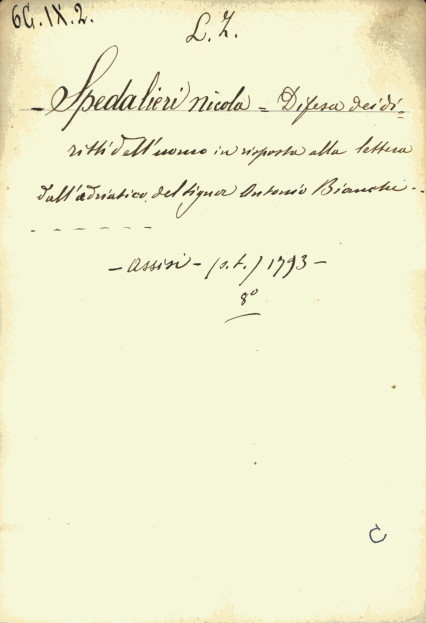 6G.IX.2.
L. Z.
- Spedalieri Nicola = Difesa dei di=
ritti dell'uomo in risposta alla lettera
dall'adriatico del signor Antonio Bianchi . .
- - - - - - -
- Assisi - (s. t.) 1793 -
8°
C